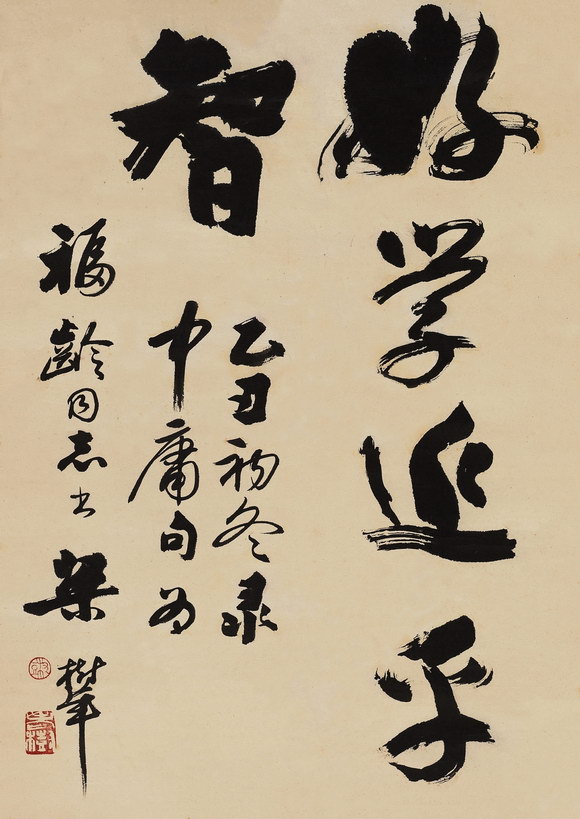 好学近乎
智
乙丑初冬录
中庸句为
福齡同志书
梁樹年